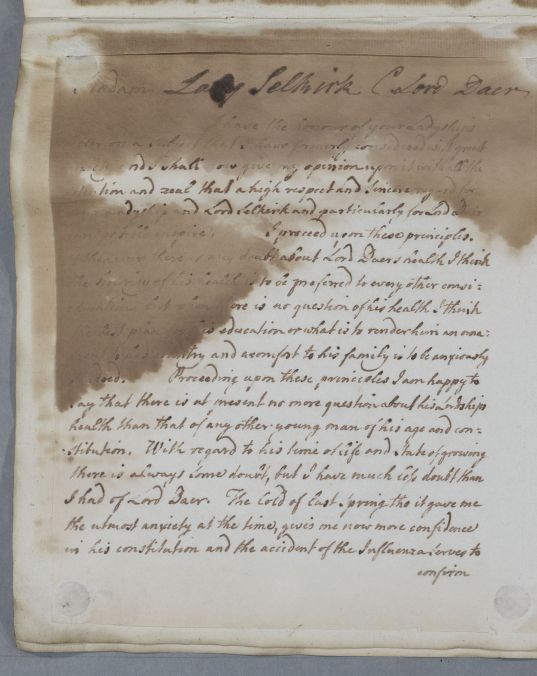 Madam Lady Selkirk C Lord Daer
I have the honour of your Ladyships
on a subject that I have formerly considered with great
and I shall now give my opinion upon it with all the
attention and zeal that a high respect and sincere regard for
Ladyship and Lord Selkirk and particularly for Lord
possible inspire. I proceed upon these principles.
there is any doubt about Lord Daers health I think
the security of his health is to be preferred to every other consi-
there is no question of his health I think
best plan for his education or what is to render him an orna-
ment to his country and a comfort to his family is to be anxiously
Proceeding upon these principles I am happy to
say that there is at present no more question about his Lordships
health than that of any other young man of his age and con-
stitution. With regard to his time of life and State of growing
there is always some doubt, but I have much less doubt than
I had of Lord Daer. The Cold of last Spring tho it gave me
the utmost anxiety at the time, gives me now more confidence
in his constitution and the accident of the Influenza serves to
confirm